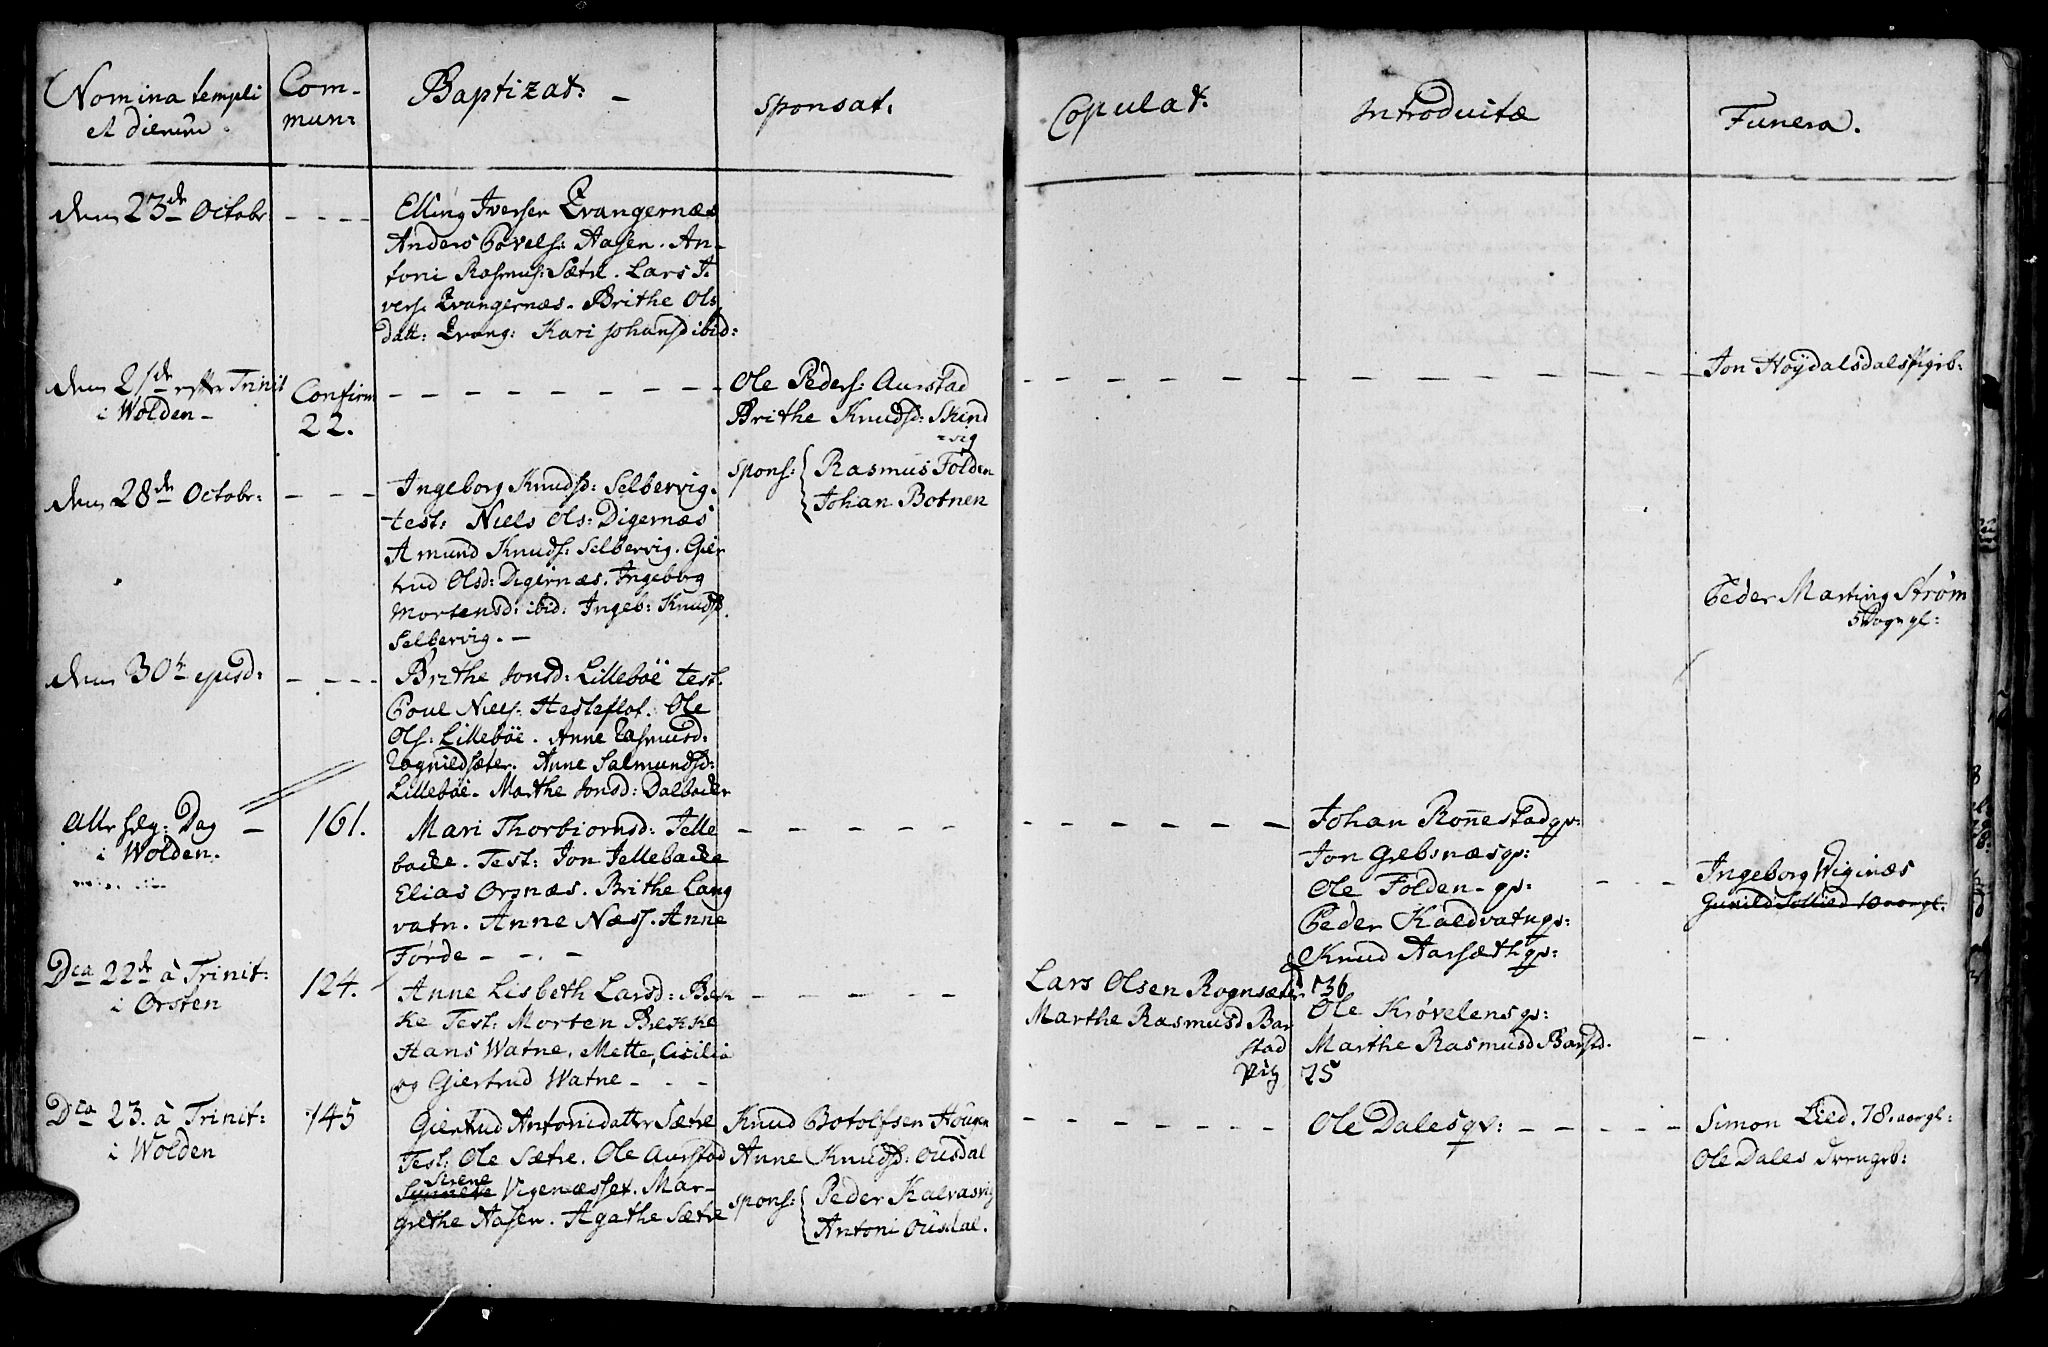 Nomina templi
et dierum.
Com-
mun:
Baptizat:
Sponsat:
Copulat:
Introductæ
Funera.
den 23de Octobr
Elling Iversen Evangernæs
Anders Povels: Aasen. An-
toni Rasmus: Sætre. Lars I-
vers. Evangernæs. Brithe Ols
datt: Evang: Kari Johansd ibid:
den 21de efter Trinit
i Wolden
Confirm
22.
Ole Peders: Aurstad
Brithe Knudsd: Skind
-vig
spons: Rasmus Folden
Johan Botnen
Jon Høydalsdals
den 28de Octobr:
Ingeborg Knudsd: Selbervig.
test: Niels Ols: Digernæs
Amund Knuds: Selbervig. Gier
trud Olsd: Digernæs. Ingeborg
Mortensd: ibid: Ingeb: Knudsd.
Selbervig.
Peder Marting Strøm
gl:
den 30te ejusd:
Brithe Jonsd: Lillebøe test.
Poul Niels: Hesteflot. Ole
Ols: Lillebøe. Anne Rasmusd:
Rognildsæter. Anne Salmundsd:
Lillebøe. Marthe Jonsd: Dalbacke
Alle helg: Dag
i Wolden.
161.
Mari Thorbiornsd: Jelle
backe. Test: Jon Jellebacke
Elias Orsnæs. Brithe Lang
vatn. Anne Næss. Anne
Førde
Johan Ronnestad qv:
Jon Gebsnæs qv:
Ole Folden qv:
Peder Kaldvatn qv:
Knud Aarsæth qv:
Ingeborg Wiginæs
Gunild 10 aar gl.
Dca 22de à Trinit:
i Orsten
124.
Anne Lisbeth Larsd: Brek
ke Test: Morten Brekke
Hans Watne, Mette, Cicilia
og Giertrud Watne
Lars Olsen Rognsæter
Marthe Rasmusd Bar
stad
Pig
136
Ole Krøvelens qv:
Marthe Rasmusd Barstd.
25
Dca 23. à Trinit:
i Wolden
145
Giertrud Antonidatter Sætre
Test: Ole Sætre. Ole Aurstad
Sirene
Synneve Vigenæsset. Mar-
grethe Aasen. Agathe Sætre
Knud Botolfsen Hougen
Anne Knudsd: Ousdal
spons: Peder Kalvasvig
Antoni Ousdal.
Ole Dales qv:
Simon Lied. 78. aar gl:
Ole Dales drengeb: